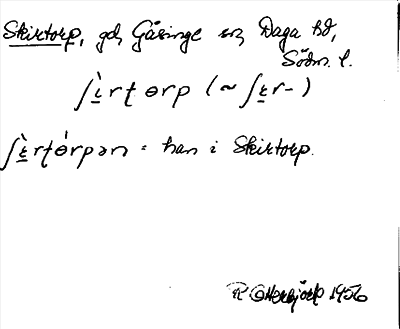 Skirtorp, gd, Gåsinge sn, Daga hd,
Södm. l.
ʃì̱rtɵrp (~ ʃɛ̱r-)
ʃɛ̱̀rtɵ́rpən = han i Skirtorp.
R Otterbjörk 1956